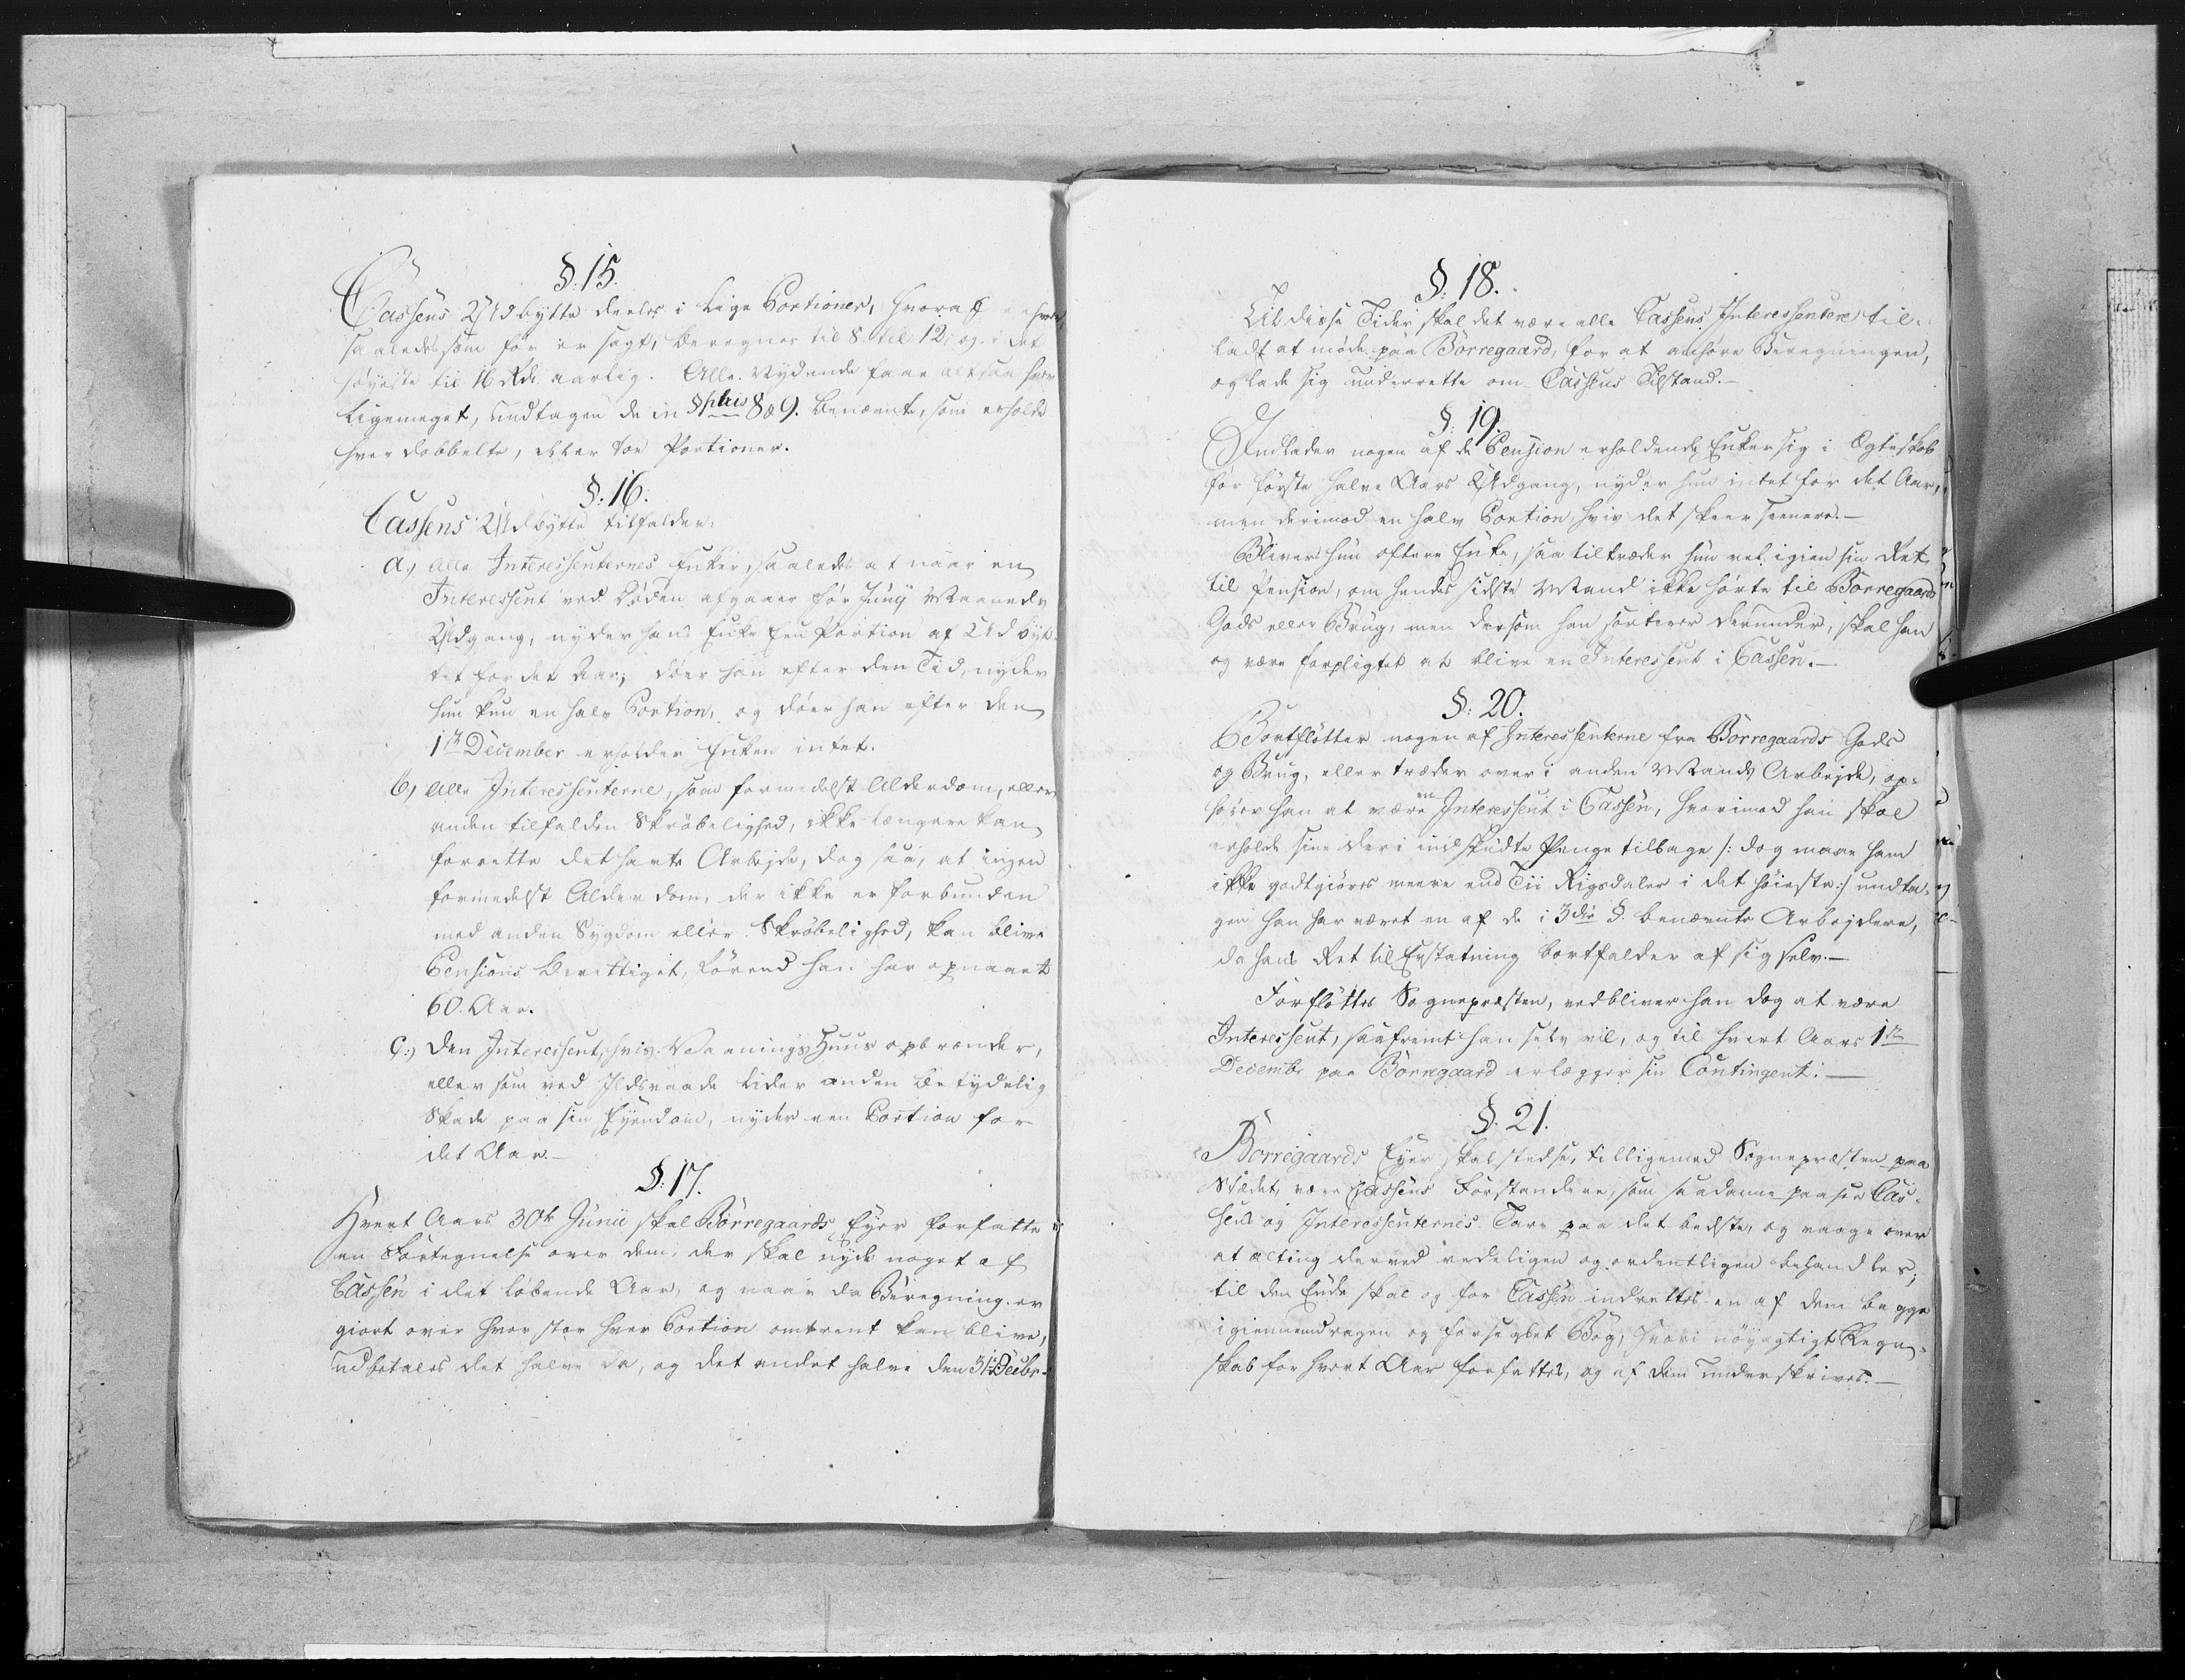 §: 15.
Cassens Udbytte deeles i lige Portioner, hvoraf enhver,
saaledes som før er sagt, beregnes til 8. til 12, og i det
høyeste til 16 Rdr aarlig. Alle Nydende faae altsaa hver
ligemeget, undtagen de in §phis 8 & 9. benævnte, som erholde
hver dobbelte, eller toe Portioner.
§: 16.
Cassens Udbytte tilfalder:
a.) Alle Interessenternes Enker, saaledes at naar en
Interessent ved Døden afgaaer før Junij Maaneds
Udgang, nyder hans Enke een Portion af Udbyt-
tet for det Aar; døer han efter den Tid, nyder
hun kun en halv Portion, og døer han efter den
1ste December erholder Enken intet.
b.) Alle Interessenterne, som formedelst Alderdom, eller
anden tilfalden Skrøbelighed, ikke længere kan
forrette det hafte Arbejde, dog saa, at ingen
formedelst Alderdom, der ikke er forbunden
med anden Sygdom eller Skrøbelighed, kan blive
Pensions berettiget, førend han har opnaaet
60. Aar.
c.) Den Interessent, hvis Vaanings Huus opbrænder,
eller som ved Ildsvaade lider anden betydelig
Skade paa sin Eyendom, nyder een Portion for
det Aar.—
§: 17.
Hvert Aars 30te Junii skal Borregaards Eyer forfatte
en Fortegnelse over dem, der skal nyde noget af
Cassen i det løbende Aar, og naar da Beregning er
giort over hvor stor hver Portion omtrent kan blive,
udbetales det halve da, og det andet halve den 31te Decbr.
§: 18.
Til disse Tider skal det være alle Cassens Interessentere til-
ladt at møde paa Borregaard, for at anhøre Beregningen,
og lade sig underrette om Cassens Tilstand.—
§: 19.
Indlader nogen af de Pension erholdende Enker sig i Ægteskab
før første halve Aars Udgang, nyder hun intet for det Aar,
men derimod en halv Portion, hvis det skeer seenere.—
Bliver hun oftere Enke, saa tiltræder hun vel igien sin Ret
til Pension, om hendes sidste Mand ikke hørte til Borregaards
Gods eller Brug, men dersom han sorterer derunder, skal han
og være forpligtet at blive en Interessent i Cassen.—
§: 20.
Bortflötter nogen af Interessenterne fra Borregaards Gods
og Brug, eller træder over i anden Mands Arbejde, op-
hører han at være en Interessent i Cassen, hvorimod han skal
erholde sine deri indskudte Penge tilbage /: dog maae ham
ikke godtgiøres meere end Tii Rigsdaler i det høieste :/ undta-
gen han har været en af de i 3die §. benævnte Arbejdere,
da hans Ret til Erstatning bortfalder af sig selv.—
Forflöttes Sognepræsten, vedbliver han dog at være
Interessent, saafremt han selv vil, og til hvert Aars 1ste
Decembr paa Borregaard erlægger sin Contingent.—
§. 21.
Borregaards Eyer skal stedse, tilligemed Sognepræsten paa
Stædet, være Cassens Forstandere, som saadanne paasee Cas-
sens og Interessenternes Tarv paa det bedste, og vaage over
at alting derved redeligen og ordentligen behandles;
til den Ende skal og for Cassen indrettes en af dem begge
igiennemdragen og forseglet Bog, hvori nøyagtigt Regn-
skab for hvert Aar forfattes, og af dem underskrives.—